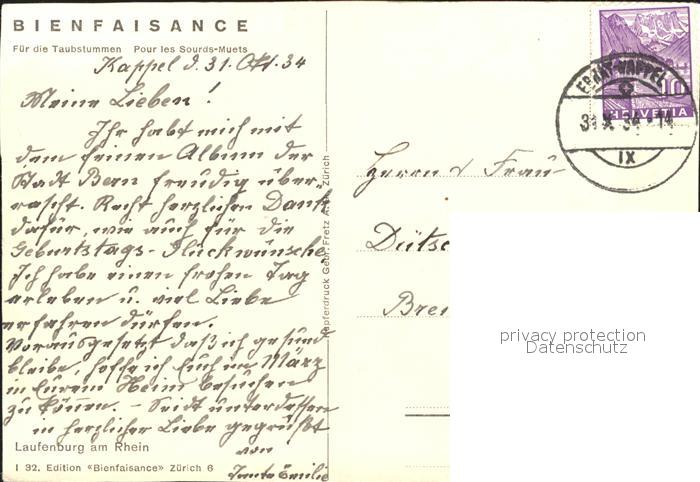 BIENFAISANCE
Für die Taubstummen Pour les Sourds-Muets
Kappel d. 31. Okt. 34
Meine Lieben!
Ihr habt mich mit
dem feinen Album der
Stadt Bern freudig über-
rascht. Recht herzlichen Dank
dafür, wie auch für die
Geburtstags-Glückwünsche.
Ich habe einen frohen Tag
erleben u. viel Liebe
erfahren dürfen.
Vorausgesetzt daß ich gesund
bleibe, hoffe ich Euch im März
in Eurem Heim besuchen
zu können. – Seidt unterdessen
in herzlicher Liebe gegrüßt
von
Tante Emilie
Laufenburg am Rhein
I 32. Edition «Bienfaisance» Zürich 6
Kupferdruck Gebr. Fretz A.G. Zürich
HELVETIA
10
EBNAT-KAPPEL
31.X.34-14
IX
Herrn & Frau
Dütsc
Bre
privacy protection
Datenschutz